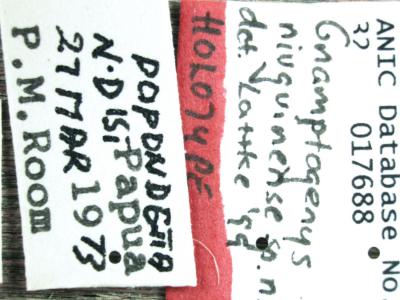 POPONDETTA
N.DIST. Papua
27 MAR 1973
P.M.Room
HOLOTYPE
Gnamptogenys
niuguinense sp.n
det. Lattke '99
ANIC Database No
32 017688